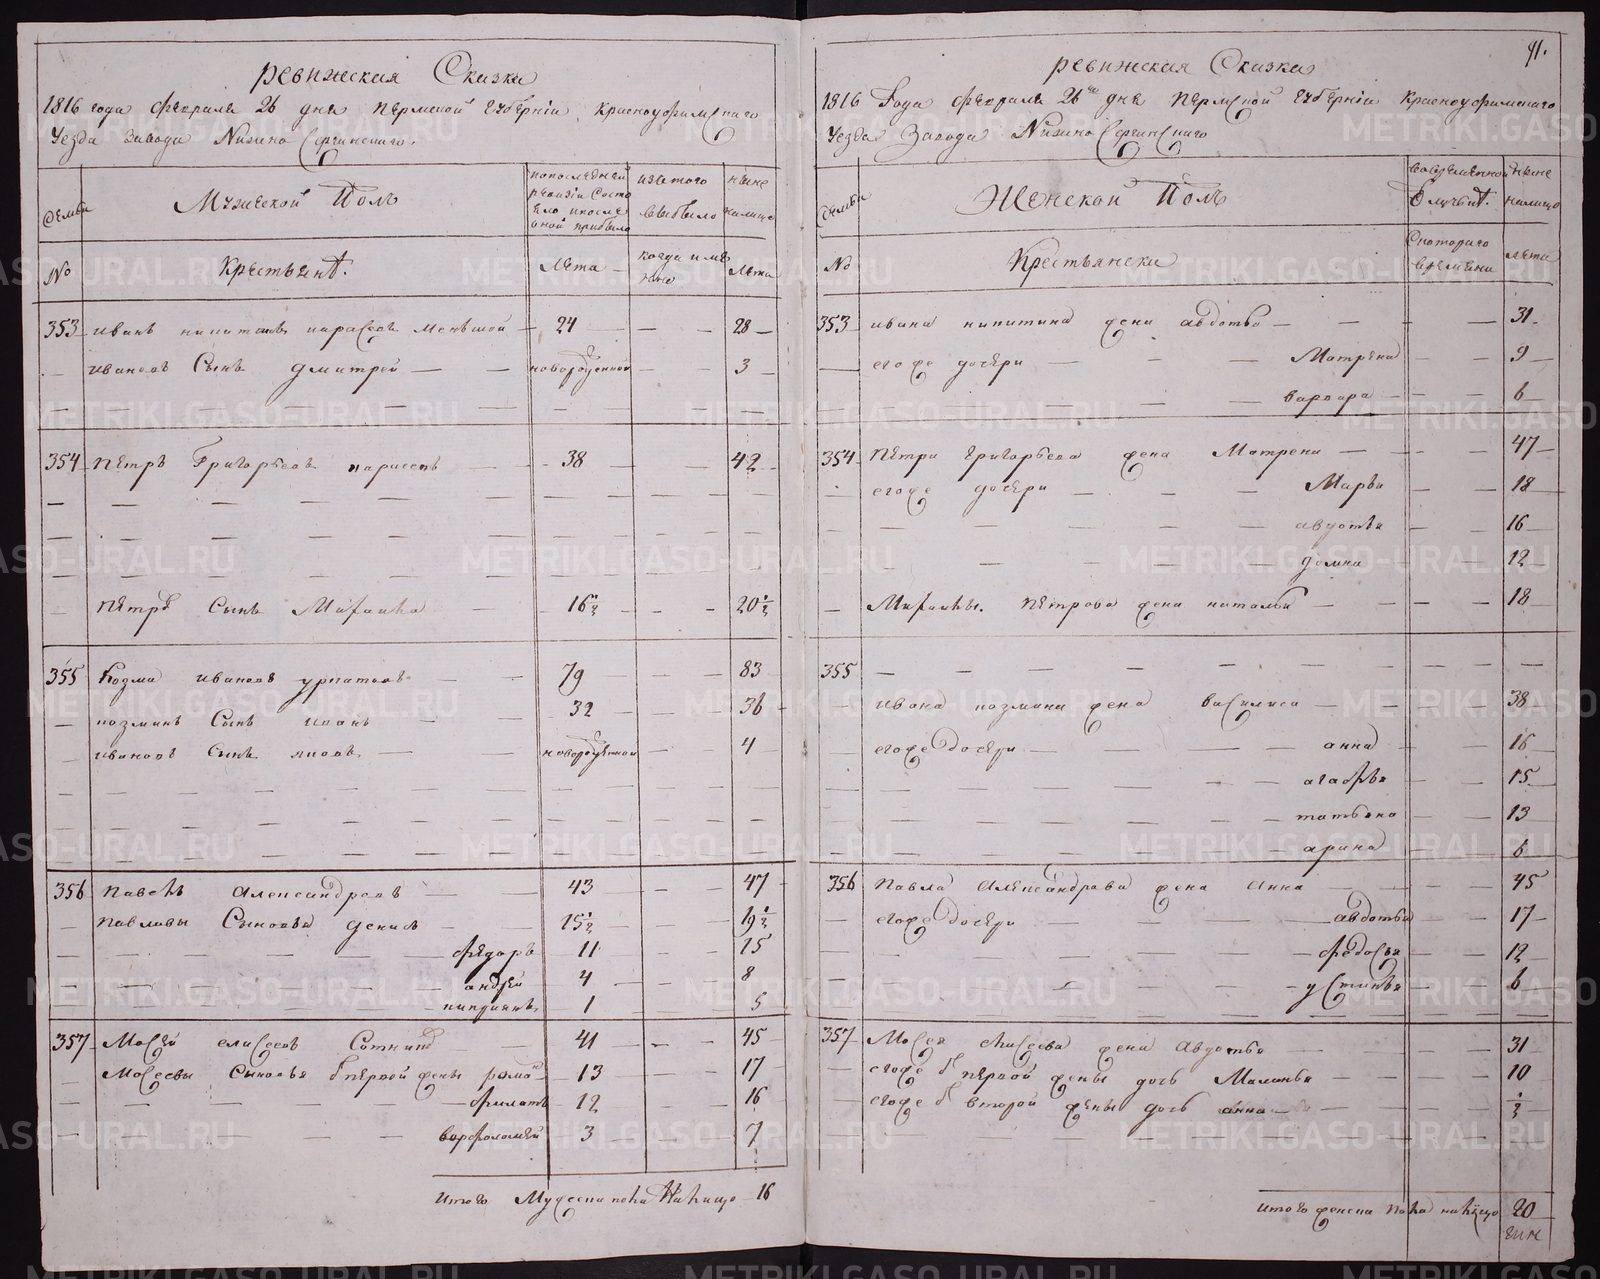 ревижская Сказка
1816 года февраля 26 дня пермской Губернiи Красноуфимскаго
Уезда Завода Нижно Сергинскаго.
Семьи
Мужеской Полъ
попоследней ревизiи Состояло ипосле оной прибыло
изътого выбыло
ныне налицо
№
Крестьянъ.
Лета
когда имянно
Лета
353 иванъ никитинъ карасевъ меньшой 24 28
ивановъ Сынъ дмитрей новорожденной 3
354 Петръ Григорьевъ карасевъ 38 42
Петра Сынъ Михаила 16 1/2 20 1/2
355 Козма ивановъ 79 83
козминъ Сынъ иванъ 32 36
ивановъ Сынъ яковъ новорожденной 4
356 Павелъ Александровъ 43 47
Павловы Сыновья денисъ 15 1/2 19 1/2
федоръ 11 15
андрей 4 8
кипрiянъ 1 5
357 Мосей елисеевъ 41 45
Мосеевы Сыновья первой жены романъ 13 17
филатъ 12 16
варфоломей 3 7
Итого Мужеска пола Налицо 16
91.
ревижская Сказка
1816 Года февраля 26го дня Пермской Губернiи Красноуфимскаго
Уезда Завода Нижно Сергинскаго
Семьи
Женской Полъ
вовременной отлучке.
ныне налицо
№
Крестьянски
Скотораго времяни
лета
353 ивана никитина жена авдотья 31
егоже дочери Матрена 9
варвара 6
354 Петра григорьева жена Матрена 47
егоже дочери Марья 18
авдотья 16
домна 12
Михаилы Петрова жена наталья 18
355
ивана козмина жена василиса 38
егоже дочери анна 16
агафья 15
татьяна 13
арина 6
356 Павла Александрова жена Анна 45
егоже дочери авдотья 17
федосья 12
устинья 6
357 Мосея елисеева жена Авдотья 31
егоже первой жены дочь Маланья 10
егоже второй жены дочь анна 1/2
итого женска пола налицо 20
METRIKI.GASO-URAL.RU